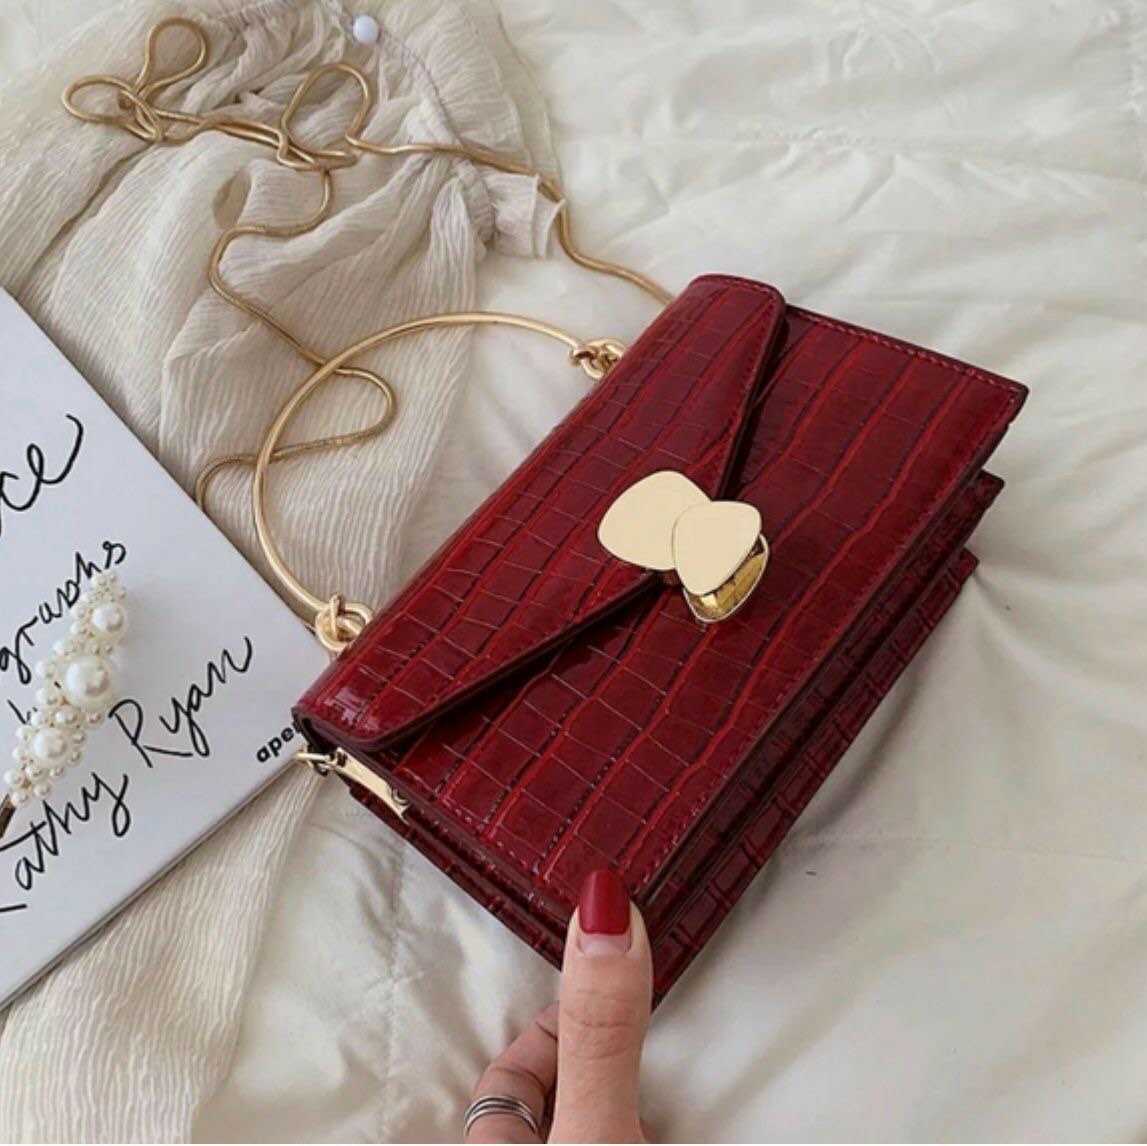 ce
graphs
Kathy Ryan
aper